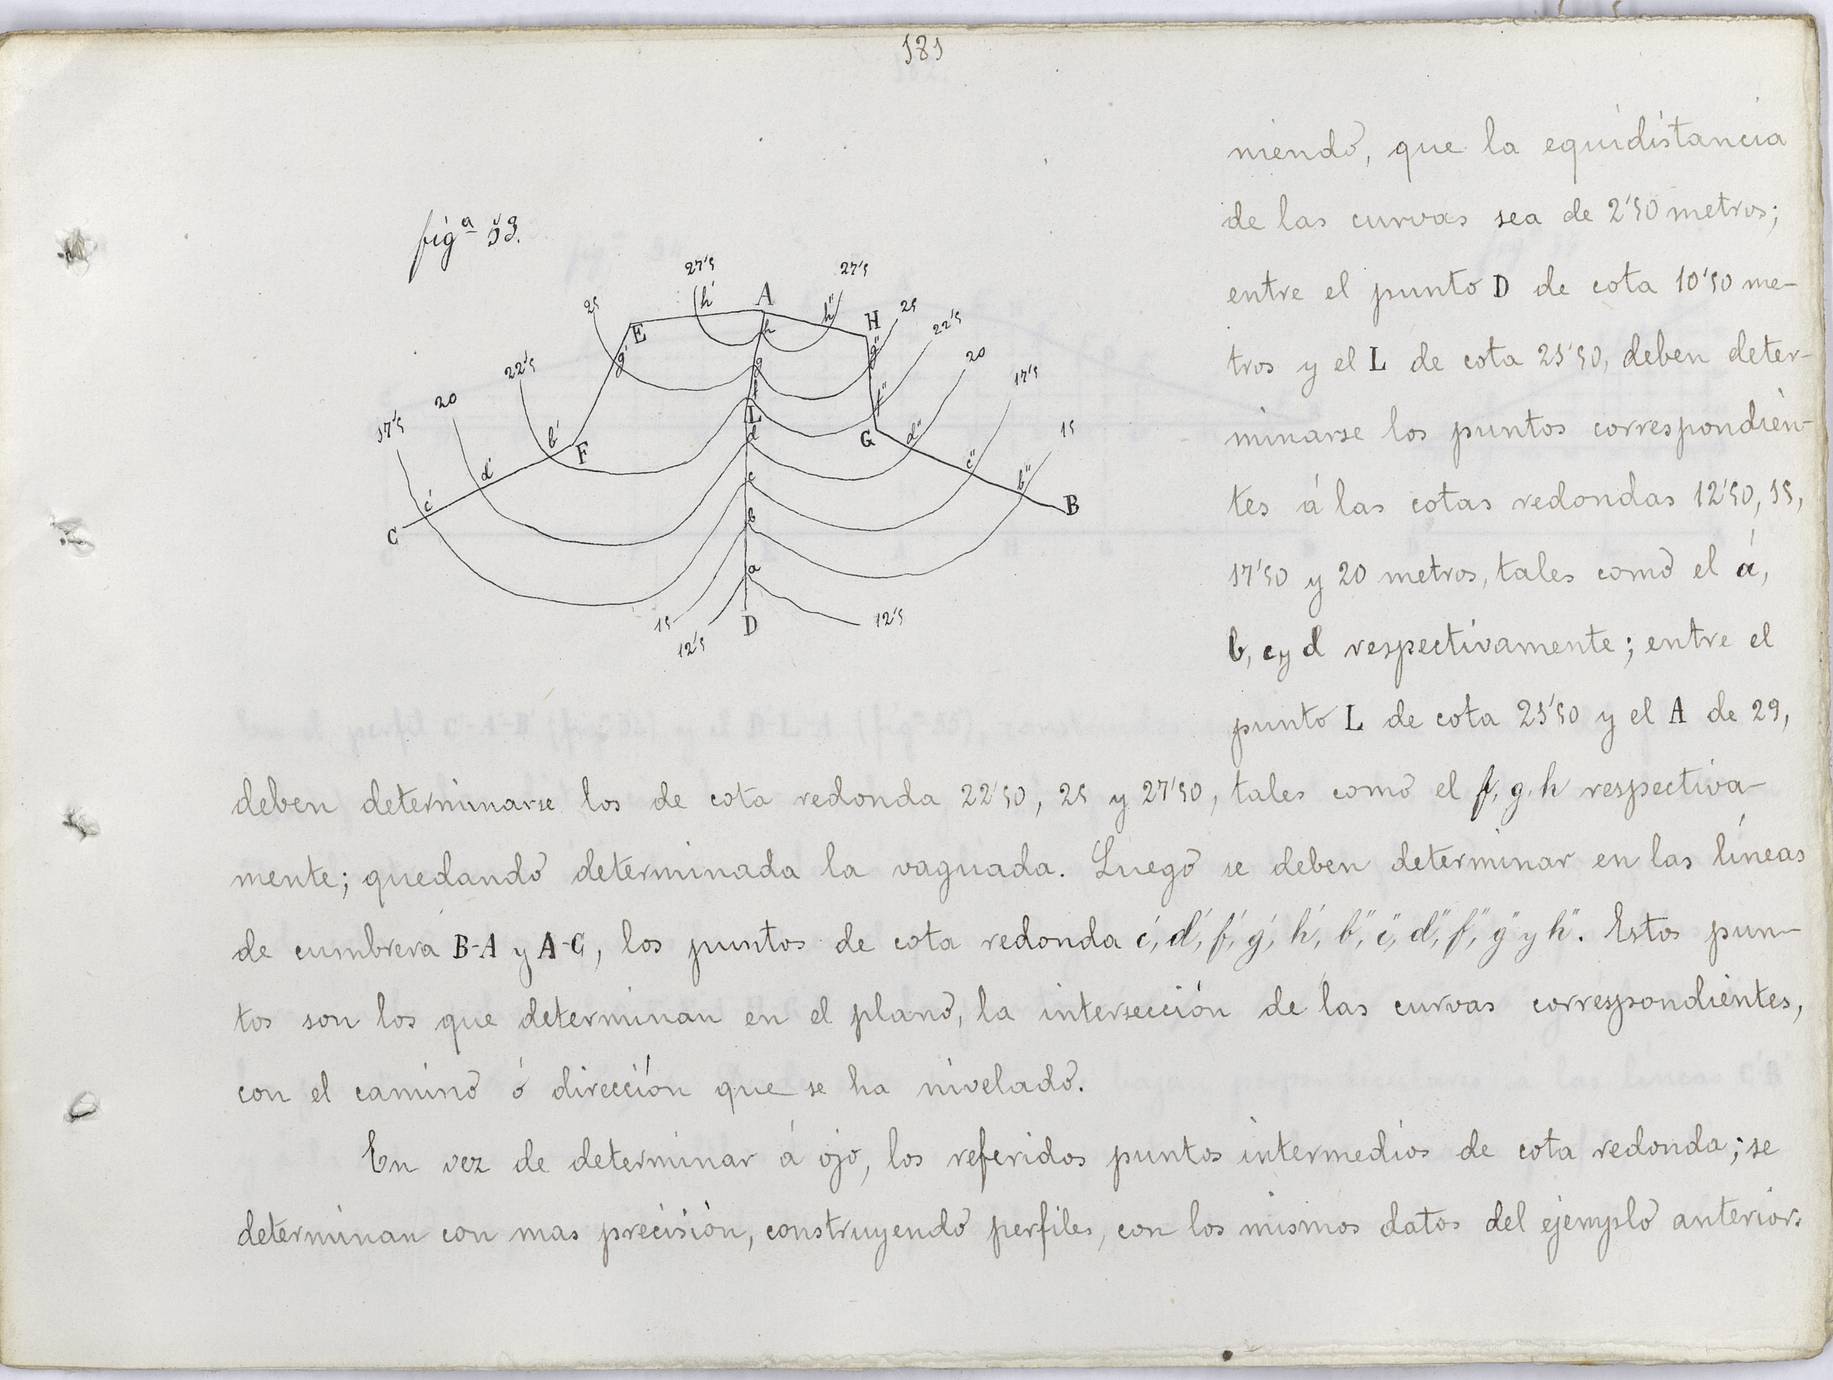 181
figª 53.
27'5
27'5
25
h'
A
h''
E
h
H
25
g'
g
g''
22'5
22'5
f
f''
20
20
L
17'5
17'5
b'
F
d
G
d''
15
d'
c
c''
c'
b''
C
b
B
a
15
D
12'5
12'5
niendo, que la equidistancia
de las curvas sea de 2'50 metros;
entre el punto D de cota 10'50 me-
tros y el L de cota 21'50, deben deter-
minarse los puntos correspondien-
tes á las cotas redondas 12'50, 15,
17'50 y 20 metros, tales como el a,
b, c y d respectivamente; entre el
punto L de cota 21'50 y el A de 29,
deben determinarse los de cota redonda 22'50, 25 y 27'50, tales como el f, g, h respectiva-
mente; quedando determinada la vaguada. Luego se deben determinar en las líneas
de cumbrera B-A y A-C, los puntos de cota redonda c', d', f', g', h', b'', c'', d'', f'', g'' y h''. Estos pun-
tos son los que determinan en el plano, la intersección de las curvas correspondientes,
con el camino ó dirección que se ha nivelado.
En vez de determinar á ojo, los referidos puntos intermedios de cota redonda; se
determinan con mas precisión, construyendo perfiles, con los mismos datos del ejemplo anterior.